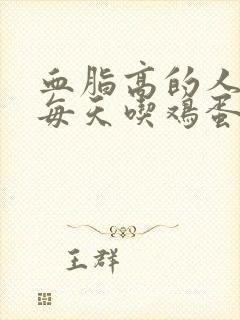 血脂高的人
每天喫鸡蛋
王群